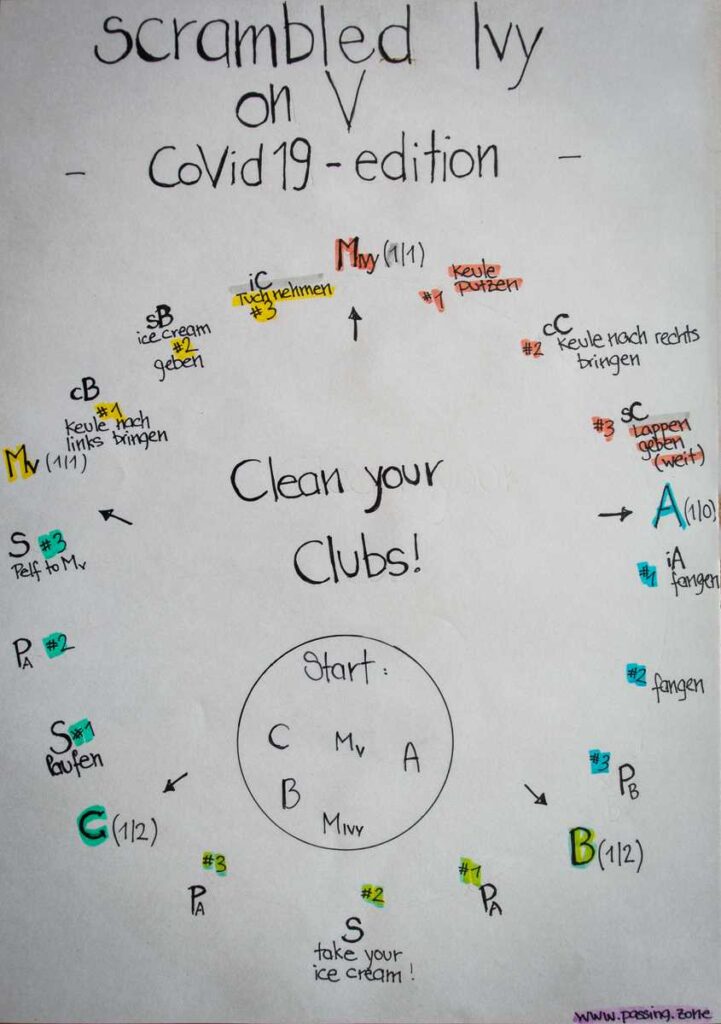 Scrambled Ivy
on V
- CoVid19 - edition -
MIvy (1|1)
#1
Keule
putzen
#2
cC
Keule nach rechts
bringen
#3
sC
Lappen
geben
(weit)
A (1|0)
#1
iA
fangen
#2
fangen
#3
PB
B (1|2)
#1
PA
#2
S
take your
ice cream!
#3
PA
C (1|2)
S #1
laufen
PA #2
S #3
Pelf to Mv
Mv (1|1)
cB
#1
Keule nach
links bringen
sB
ice cream
#2
geben
iC
Tuch nehmen
#3
Clean your
Clubs!
Start:
C
Mv
A
B
MIVY
www.passing.zone